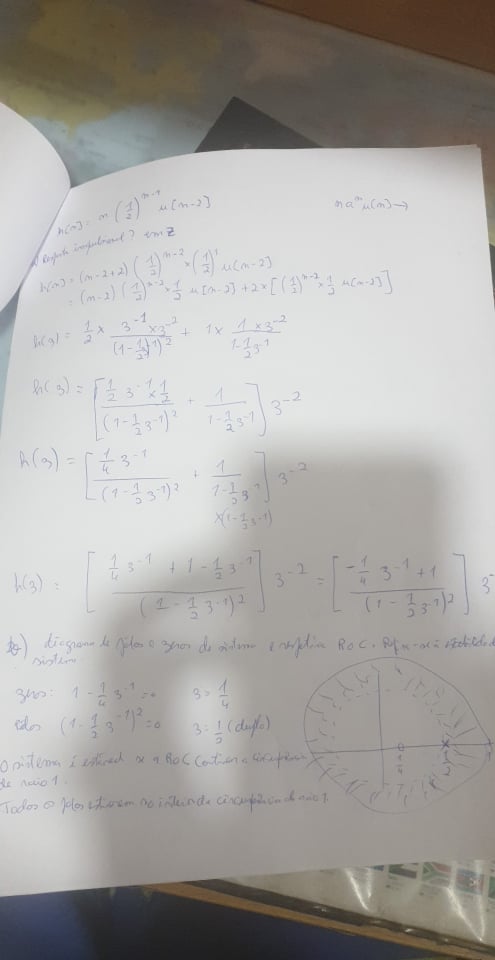 h[n] = n (1/2)^{n-1} u[n-2]
n a^n u[n] →
Resposta impulsional? em Z
h[n] = (n-2+2) (1/2)^{n-2} × (1/2)^1 u[n-2]
= (n-2) (1/2)^{n-2} × 1/2 u[n-2] + 2 × [(1/2)^{n-2} × 1/2 u[n-2]]
h(z) = 1/2 × (z^{-1} × z^{-2})/(1 - 1/2 z^{-1})^2 + 1 × (1 × z^{-2})/(1 - 1/2 z^{-1})
h(z) = [(1/2 z^{-1} × 1/2)/(1 - 1/2 z^{-1})^2 + 1/(1 - 1/2 z^{-1})] z^{-2}
h(z) = [(1/4 z^{-1})/(1 - 1/2 z^{-1})^2 + 1/(1 - 1/2 z^{-1})] z^{-2}
×(1 - 1/2 z^{-1})
h(z) = [(1/4 z^{-1} + 1 - 1/2 z^{-1})/(1 - 1/2 z^{-1})^2] z^{-2} = [(-1/4 z^{-1} + 1)/(1 - 1/2 z^{-1})^2] z
diagrama de polos e zeros do sistema e respetiva ROC.
sistema
zeros: 1 - 1/4 z^{-1} = 0 z = 1/4
polos (1 - 1/2 z^{-1})^2 = 0 z = 1/2 (duplo)
O sistema é estável se a ROC contiver a circunferência
de raio 1.
Todos os polos estiverem no interior da circunferência de raio 1.
1/4
1/2
1